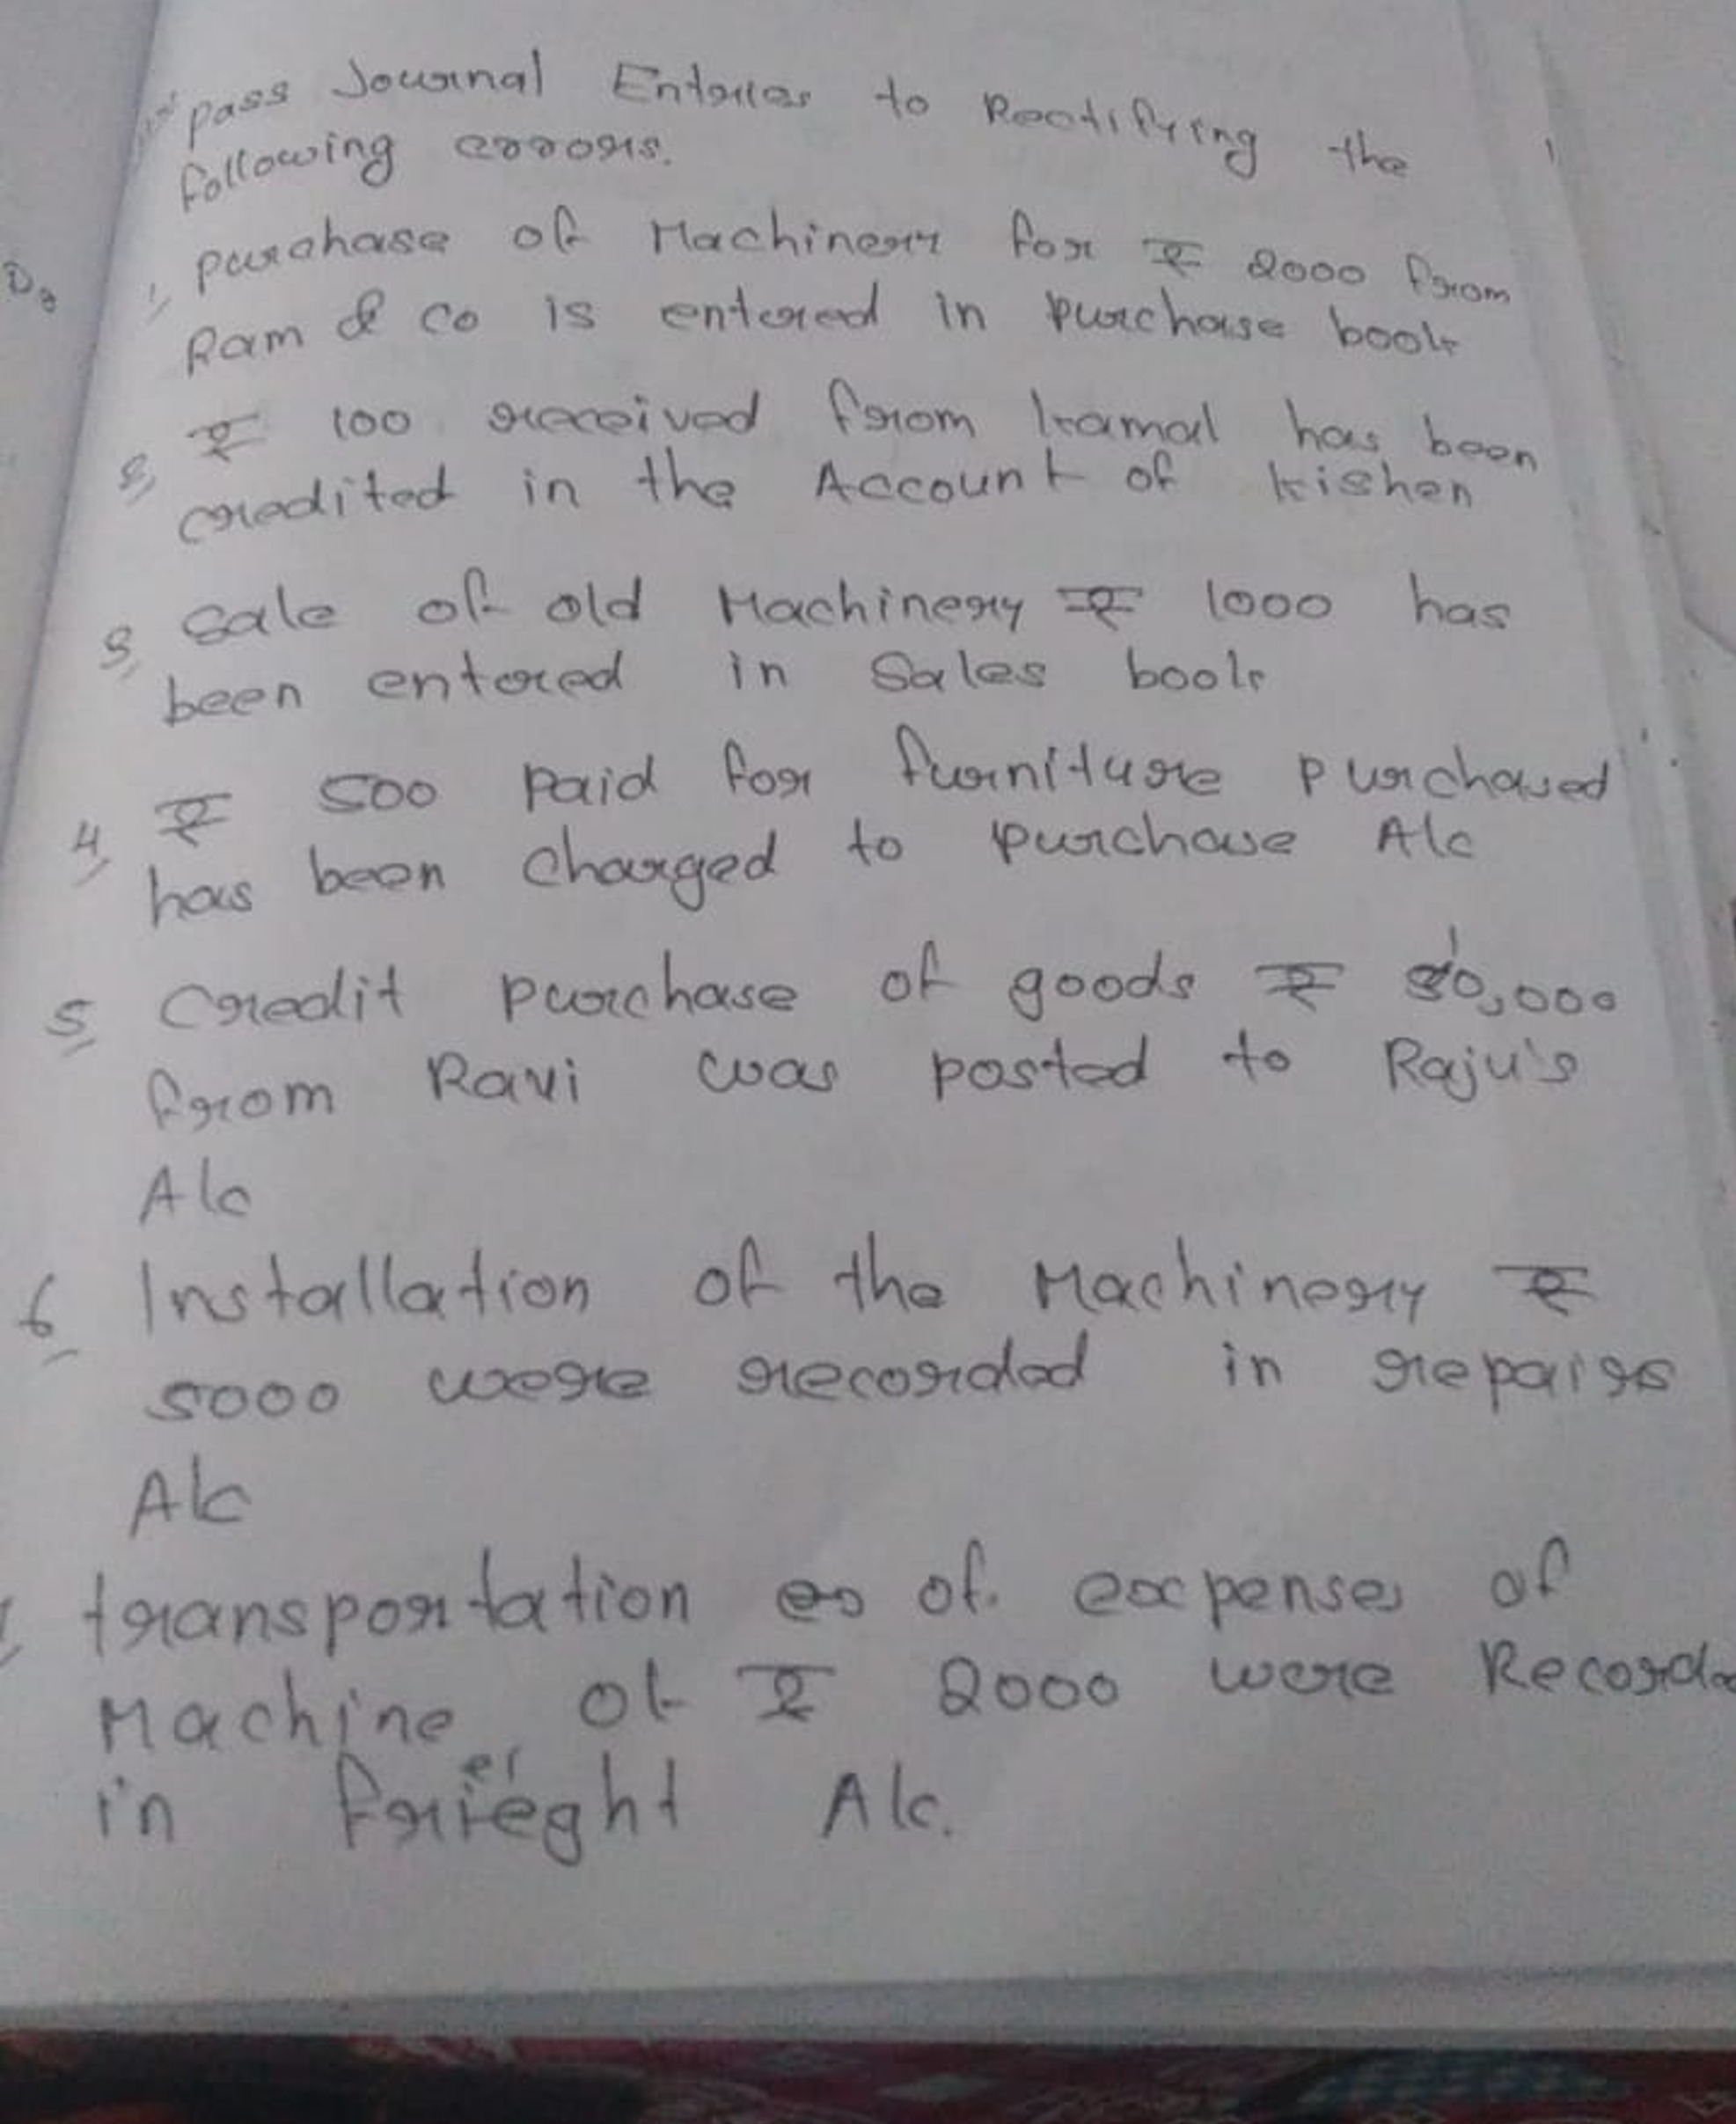 pass Journal Entries to Rectifying the
following errors.
1, purchase of Machinery for ₹ 2000 from
Ram & Co is entered in purchase book
2, ₹ 100 received from kamal has been
credited in the Account of kishen
3, Sale of old Machinery ₹ 1000 has
been entered in Sales book
4, ₹ 500 paid for furniture purchased
has been charged to purchase A/c
5, Credit purchase of goods ₹ 10,000
from Ravi was posted to Raju's
A/c
6, Installation of the Machinery ₹
5000 were recorded in repairs
A/c
transportation of expenses of
Machine of ₹ 2000 were Recorde
in freight A/c.